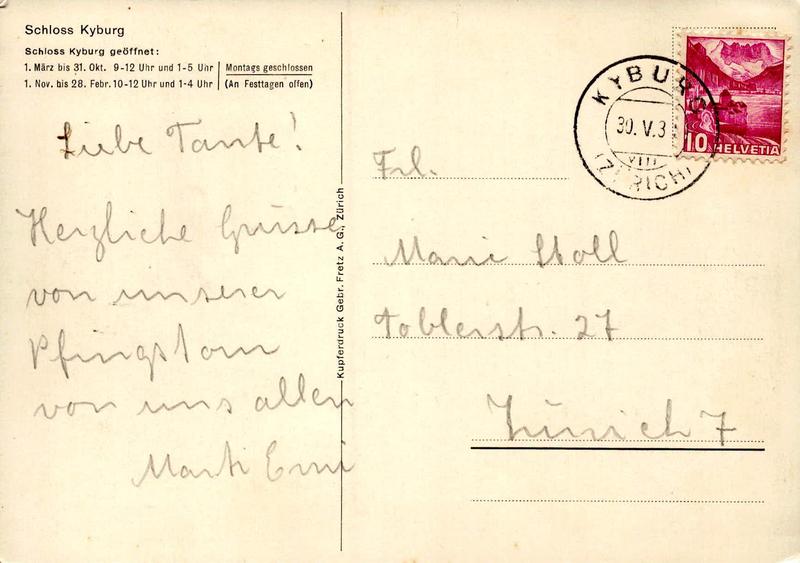 Schloss Kyburg
Schloss Kyburg geöffnet:
1. März bis 31. Okt. 9-12 Uhr und 1-5 Uhr
1. Nov. bis 28. Febr. 10-12 Uhr und 1-4 Uhr
Montags geschlossen
(An Festtagen offen)
Liebe Tante!
Herzliche Grüsse
von unserer
Pfingsttour
von uns allen
Marti Erni
Kupferdruck Gebr. Fretz A. G., Zürich
KYBURG
30. V. 3
VIII
(ZÜRICH)
10 HELVETIA
Frl.
Marie Stoll
Toblerstr. 27
Zürich 7